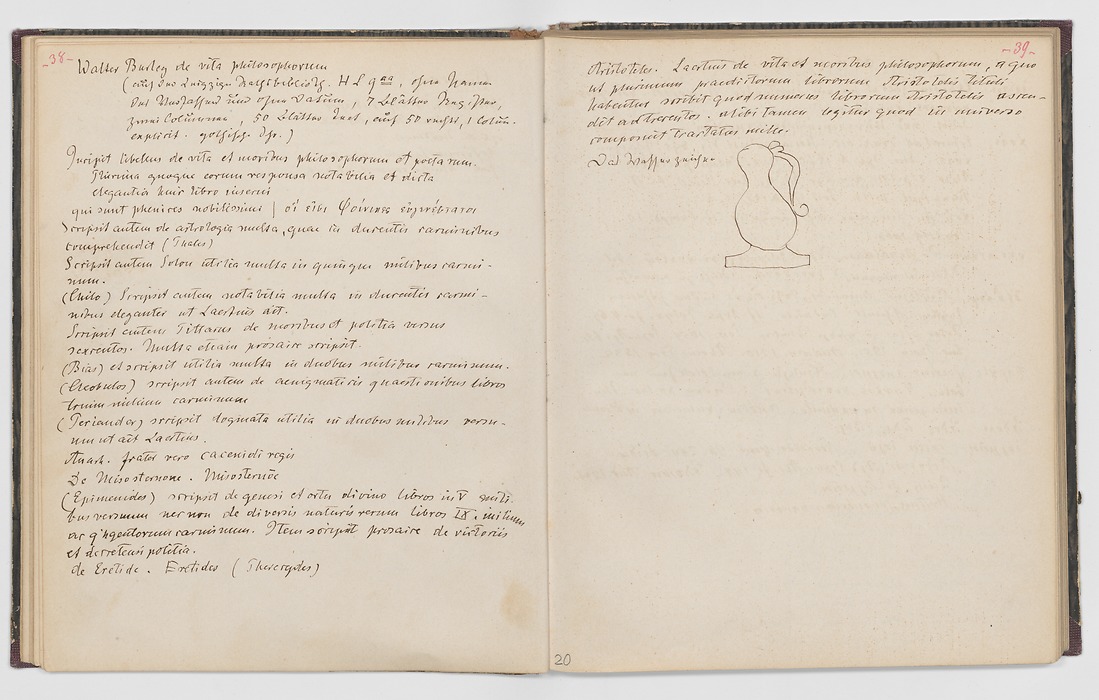 -38-
Walter Burley de vita philosophorum
(auf der Leipziger Rathsbibliothek. H L q aa, ohne Namen
des Verfassers und ohne Datum, 7 Blätter Register,
zwei Columnen, 50 Blätter Text, auf 50 recto, 1 Colum.
explicit. gothisch. Schr.)
Incipit libellus de vita et moribus philosophorum et poetarum.
Plurima quoque eorum responsa notabilia et dicta
elegantia huic libro inserui
qui sunt phenices nobilissimi | οἵ εἰσι Φοίνικες εὐγενέστατοι
Scripsit autem de astrologia multa, quae in ducentis carminibus
comprehendit (Thales)
Scripsit autem Solon utilia multa in quinque milibus carmi-
num.
(Chilo) Scripsit autem notabilia multa in ducentis carmi-
nibus eleganter ut Laertius ait.
Scripsit autem Pittacus de moribus et politia versus
sexcentos. Multa etiam prosaice scripsit.
(Bias) et scripsit utilia multa in duobus milibus carminum.
(Cleobulos) scripsit autem de aenigmaticis quaestionibus libros
trium milium carminum
(Periander) scripsit dogmata utilia in duobus milibus versu-
um ut ait Laertius.
Anach. frater vero cacenidi regis
De Misosternone. Misosternõe
(Epimenides) scripsit de genesi et ortu divino libros in V mili-
bus versuum nec non de diversis naturis rerum libros IX. milium
ac q'ngentorum carminum. Item scripsit prosaice de victoriis
et de cretensi politia.
de Eretide. Eretides (Pherecydes)
-39-
Aristoteles. Laertius de vita et moribus philosophorum, a quo
ut plurimum praedictorum librorum Aristotelis tituli
habentur scribit quod numerus librorum Aristotelis ascen-
dit ad trecentos. alibi tamen legitur quod in universo
composuit tractatus mille.
Das Wasserzeichen
20